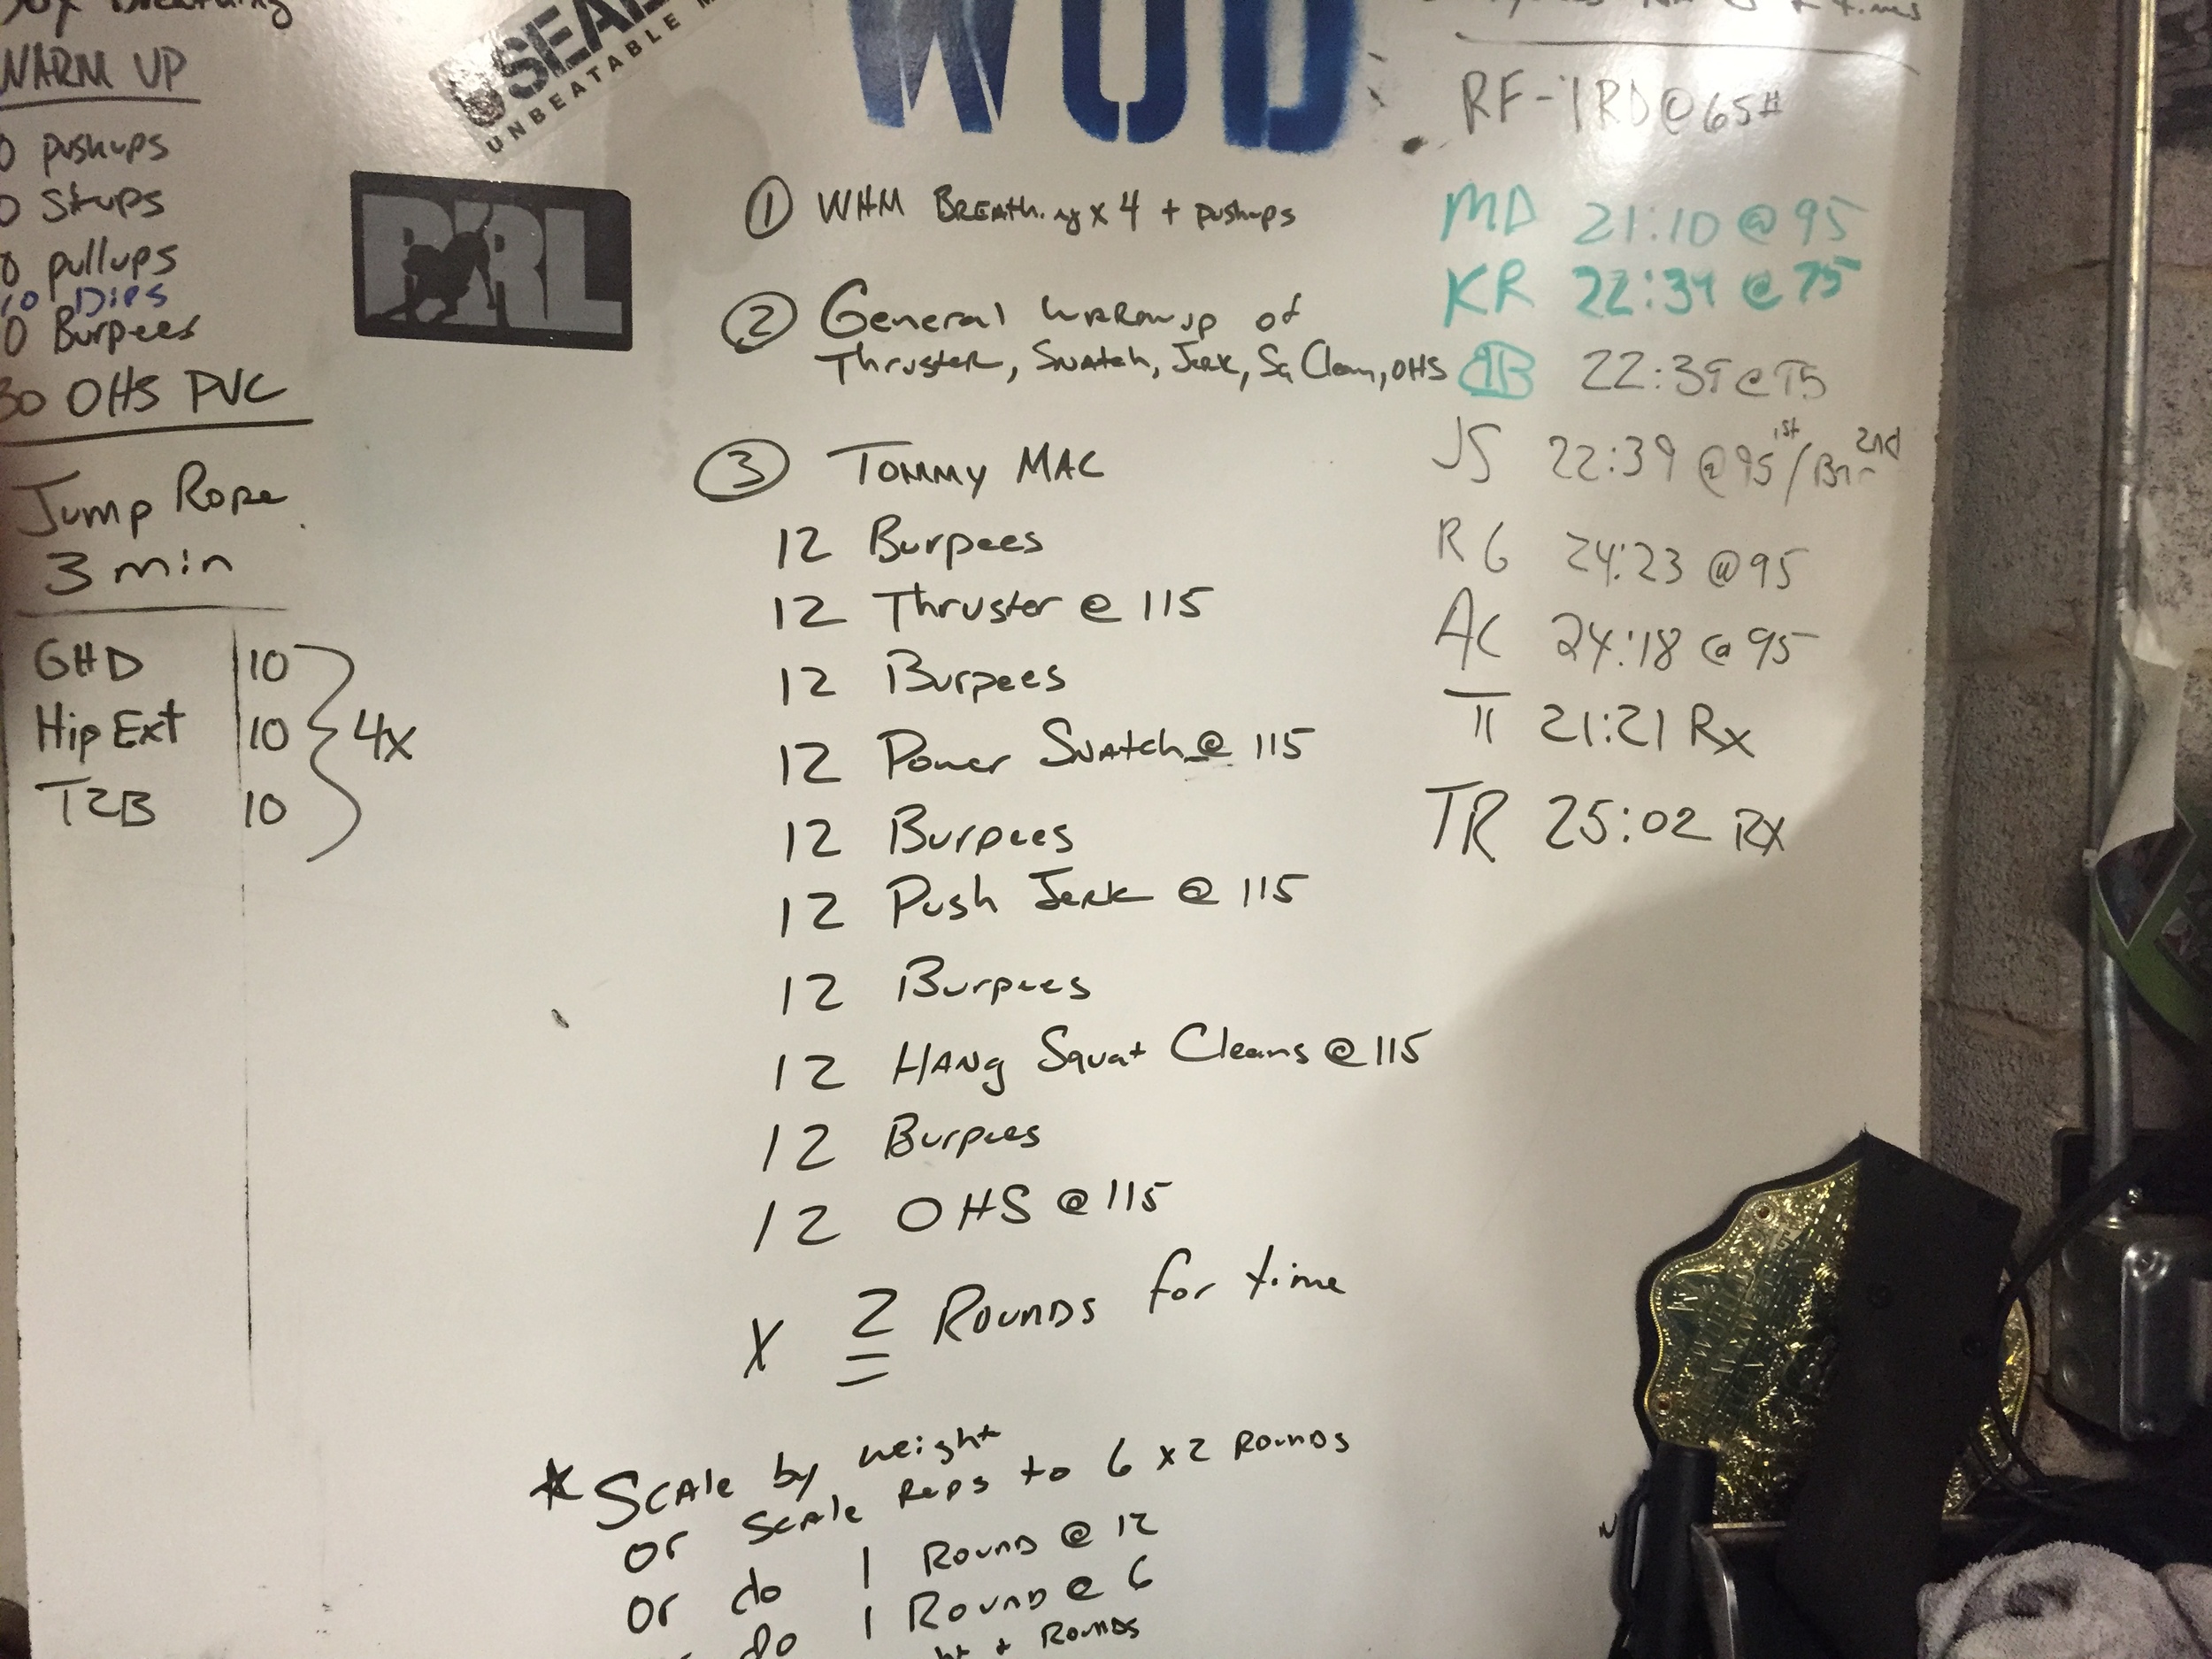 Breathing
WARM UP
0 pushups
0 Situps
0 pullups
10 Dips
0 Burpees
30 OHS PVC
Jump Rope
3 min
GHD 10
Hip Ext 10
T2B 10
4x
SEAL
UNBEATABLE
PJRL
WOD
① WHM BREATHing x 4 + pushups
② General WARMup of
Thruster, SNATCh, JERK, Sq Clean, OHS
③ TOMMY MAC
12 Burpees
12 Thruster @ 115
12 Burpees
12 Power SNATCh @ 115
12 Burpees
12 Push JERK @ 115
12 Burpees
12 HANg Squat Cleans @ 115
12 Burpees
12 OHS @ 115
X 2 ROUNDS for time
* SCAle by weight
or SCAle Reps to 6 x 2 ROUNDS
or do 1 ROUND @ 12
do 1 ROUND @ 6
+ ROUNDS
times
RF-1RD @ 65#
MD 21:10 @ 95
KR 22:34 @ 75
22:39 @ 75
JS 22:39 @ 95 1st / 2nd
RG 24:23 @ 95
AC 24:18 @ 95
21:21 Rx
TR 25:02 Rx